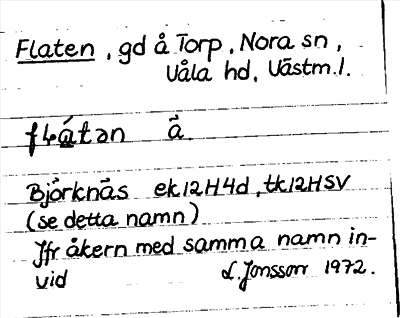 Flaten, gd å Torp, Nora sn,
Våla hd, Västm.l.
fɬátən ã.
Björknäs ek12H4d, tk12HSV
(se detta namn)
Jfr åkern med samma namn in-
vid L. Jonsson 1972.